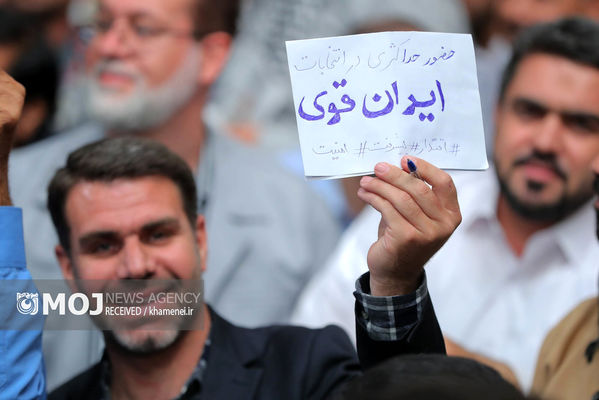 حضور حداکثری در انتخابات
ایران قوی
#اقتدار #پیشرفت #امنیت
MOJ NEWS AGENCY
RECEIVED / khamenei.ir